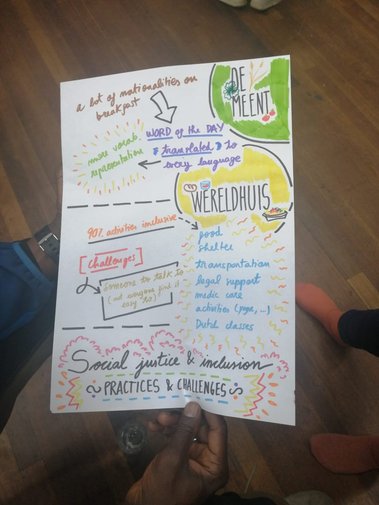 a lot of nationalities on
breakfast
DE
MEENT
WORD of the DAY
translated to
every language
more vocab.
representation
WERELDHUIS
90% activities inclusive
Challenges
Someone to talk to
(not everyone find it
easy to)
food
shelter
transportation
legal support
medic care
activities (yoga, ...)
Dutch classes
Social justice & inclusion
PRACTICES & CHALLENGES